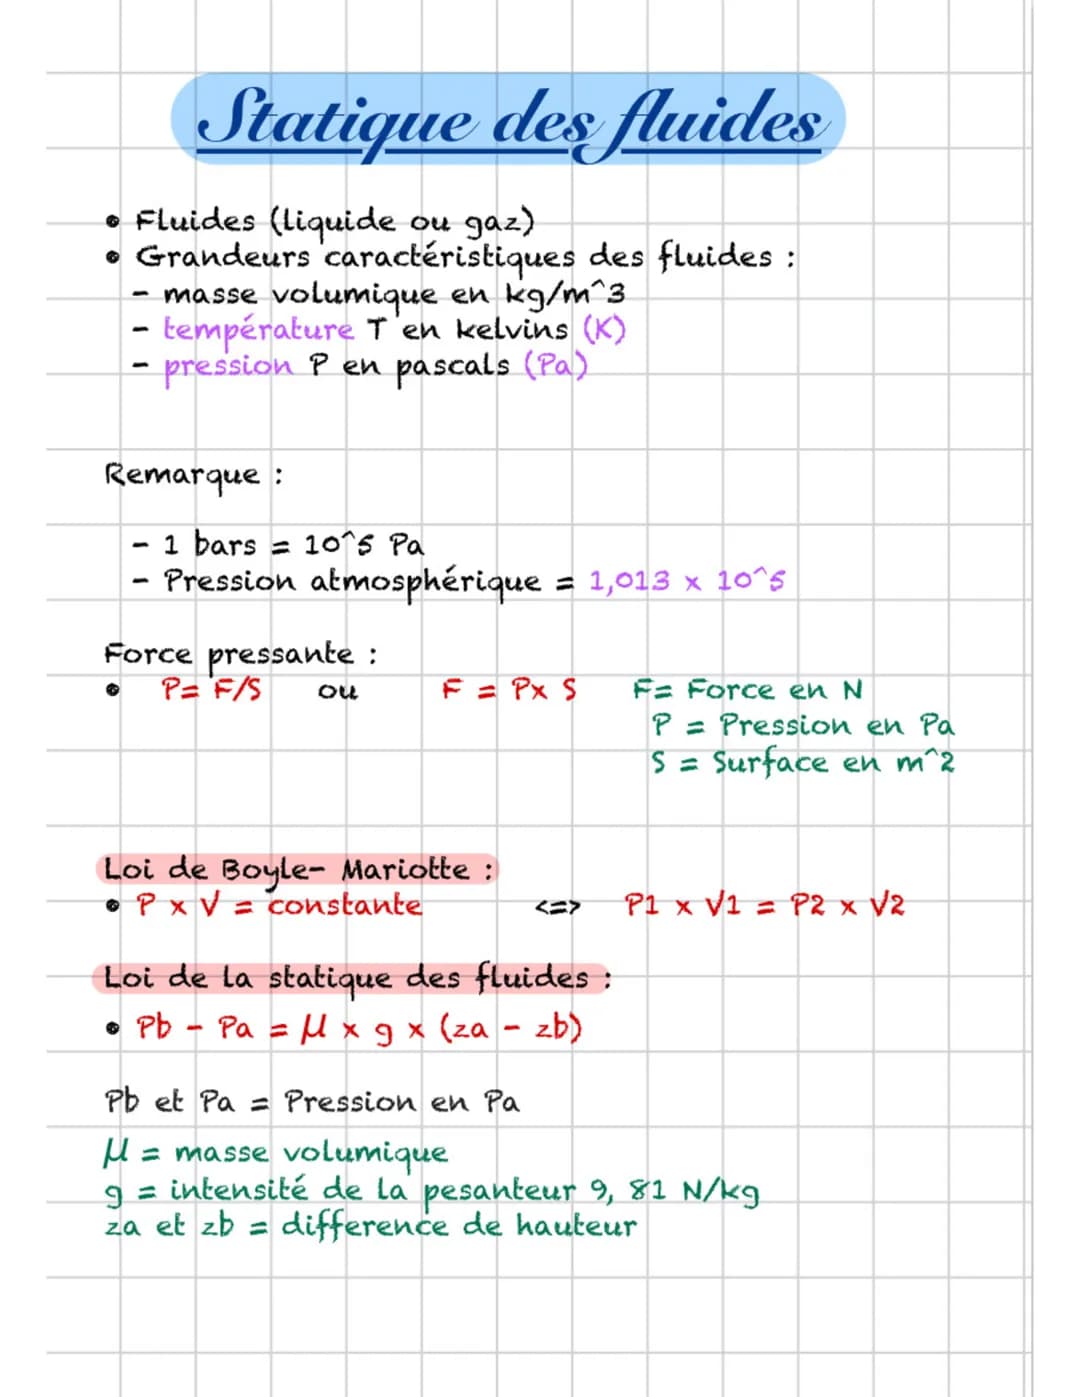 Statique des fluides
• Fluides (liquide ou gaz)
• Grandeurs caractéristiques des fluides :
- masse volumique en kg/m^3
- température T en kelvins (K)
- pression P en pascals (Pa)
Remarque :
- 1 bars = 10^5 Pa
- Pression atmosphérique = 1,013 x 10^5
Force pressante :
• P= F/S ou F = Px S F= Force en N
P = Pression en Pa
S = Surface en m^2
Loi de Boyle- Mariotte :
• P x V = constante <=> P1 x V1 = P2 x V2
Loi de la statique des fluides :
• Pb - Pa = μ x g x (za - zb)
Pb et Pa = Pression en Pa
μ = masse volumique
g = intensité de la pesanteur 9, 81 N/kg
za et zb = difference de hauteur